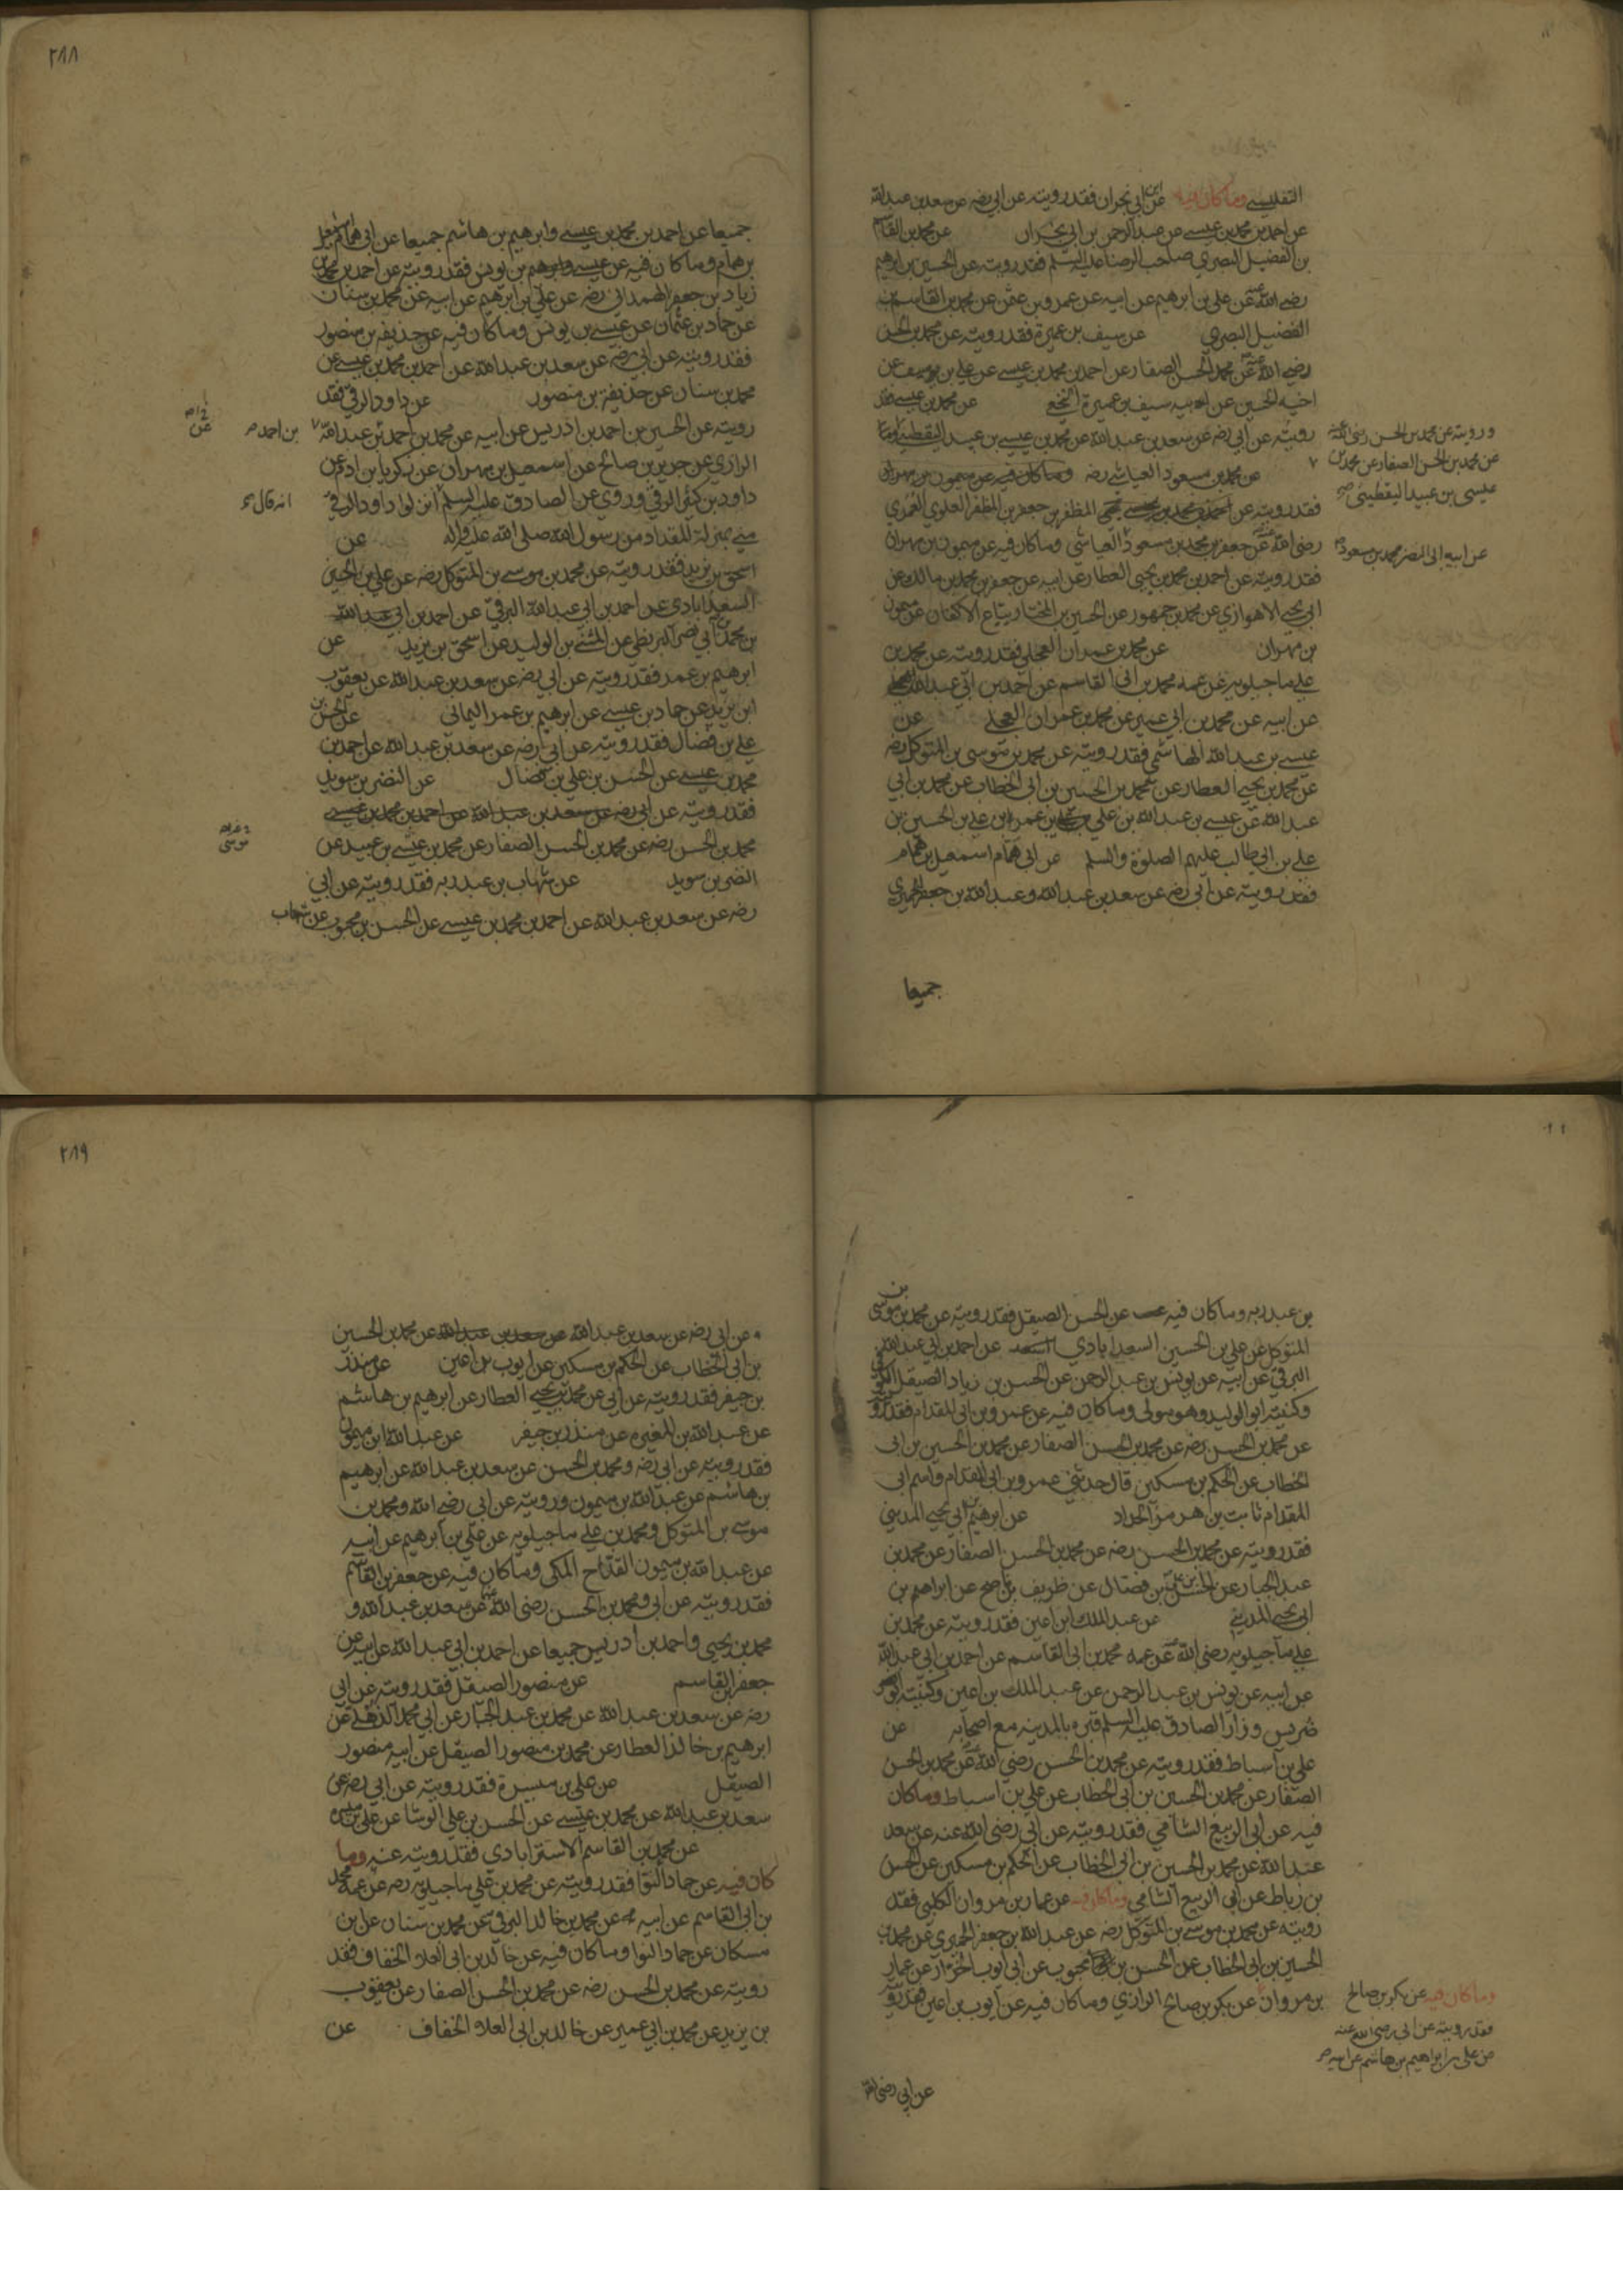 التفليسي وما كان فيه عن ابن ابي نجران فقد رويته عن ابي رضه عن سعد بن عبدالله
عن احمد بن محمد بن عيسى عن عبدالرحمن بن ابي نجران عن محمد بن القاسم
بن الفضيل البصري صاحب الرضا عليه السلم فقد رويته عن الحسين بن ابرهيم
رضي الله عنه عن علي بن ابرهيم عن ابيه عن عمرو بن عثمن عن محمد بن القاسم بن
الفضيل البصري عن سيف بن عميرة فقد رويته عن محمد بن الحسن
رضي الله عنه عن محمد بن الحسن الصفار عن احمد بن محمد بن عيسى عن علي بن سيف عن
اخيه الحسين عن ابيه سيف بن عميرة النخعي عن محمد بن عيسى فقد
رويته عن ابي رضه عن سعد بن عبدالله عن محمد بن عيسى بن عبيد اليقطيني
ورويته عن محمد بن الحسن رضي الله عنه
عن محمد بن الحسن الصفار عن محمد بن
عيسى بن عبيد اليقطيني صح
عن محمد بن مسعود العياشي رضه وما كان فيه عن ميمون بن مهران
فقد رويته عن المظفر بن جعفر بن المظفر العلوي العمري
رضي الله عنه عن جعفر بن محمد بن مسعود العياشي وما كان فيه عن ميمون بن مهران
عن ابيه ابي النضر محمد بن مسعود
فقد رويته عن احمد بن محمد بن يحيى العطار عن ابيه عن جعفر بن محمد بن مالك عن
ابي يحيى الاهوازي عن محمد بن جمهور عن الحسين بن المختار بياع الاكفان عن ميمون
بن مهران عن محمد بن عمران العجلي فقد رويته عن محمد بن
علي ماجيلويه عن عمه محمد بن ابي القاسم عن احمد بن ابي عبدالله
عن ابيه عن محمد بن ابي عمير عن محمد بن عمران العجلي عن
عيسى بن عبدالله الهاشمي فقد رويته عن محمد بن موسى بن المتوكل رضه
عن محمد بن يحيى العطار عن محمد بن الحسين بن ابي الخطاب عن محمد بن ابي
عبدالله عن عيسى بن عبدالله بن علي بن عمر بن علي بن الحسين بن
علي بن ابي طالب عليهم الصلوة والسلم عن ابي همام اسمعيل بن همام
فقد رويته عن ابي رضه عن سعد بن عبدالله وعبدالله بن جعفر الحميري
جميعا
٢٨٨
جميعا عن احمد بن محمد بن عيسى وابرهيم بن هاشم جميعا عن ابي همام اسمعيل
بن همام وما كان فيه عن عيسى بن يونس فقد رويته عن احمد بن محمد بن
زياد بن جعفر الهمداني رضه عن علي بن ابرهيم عن ابيه عن محمد بن سنان
عن حماد بن عثمان عن عيسى بن يونس وما كان فيه عن حذيفه بن منصور
فقد رويته عن ابي رضه عن سعد بن عبدالله عن احمد بن محمد بن عيسى عن
محمد بن سنان عن حذيفة بن منصور عن داود الرقي فقد
رويته عن الحسين بن احمد بن ادريس عن ابيه عن محمد بن احمد عن عبدالله
بن احمد صح
الرازي عن حريز بن صالح عن اسمعيل بن مهران عن زكريا بن ادم عن
داود بن كثير الرقي وروي عن الصادق عليه السلم انزلوا داود الرقي
انه قال
مني بمنزلة المقداد من رسول الله صلى الله عليه واله عن
اسحق بن يزيد فقد رويته عن محمد بن موسى بن المتوكل رضه عن علي بن الحسين
السعدابادي عن احمد بن ابي عبدالله البرقي عن احمد بن ابي عبدالله
بن محمد بن ابي نصر البزنطي عن المثنى بن الوليد عن اسحق بن يزيد عن
ابرهيم بن عمر فقد رويته عن ابي رضه عن سعد بن عبدالله عن يعقوب
ابن يزيد عن حماد بن عيسى عن ابرهيم بن عمر اليماني عن الحسن بن
علي بن فضال فقد رويته عن ابي رضه عن سعد بن عبدالله عن احمد بن
محمد بن عيسى عن الحسن بن علي بن فضال عن النضر بن سويد
فقد رويته عن ابي رضه عن سعد بن عبدالله عن احمد بن محمد بن عيسى
محمد بن الحسن رضه عن محمد بن الحسن الصفار عن محمد بن عيسى بن عبيد عن
النضر بن سويد عن شهاب بن عبد ربه فقد رويته عن ابي
رضه عن سعد بن عبدالله عن احمد بن محمد بن عيسى عن الحسن بن محبوب عن شهاب
بن عبد ربه وما كان فيه عن الحسن الصيقل فقد رويته عن محمد بن موسى بن
المتوكل عن علي بن الحسين السعدابادي عن احمد بن ابي عبدالله
البرقي عن ابيه عن يونس بن عبد الرحمن عن الحسن بن زياد الصيقل الكوفي
وكنيته ابو الوليد وهو مولى وما كان فيه عن عمرو بن ابي المقدام فقد رويته
عن محمد بن الحسن رضه عن محمد بن الحسن الصفار عن محمد بن الحسين بن ابي
الخطاب عن الحكم بن مسكين قال حدثني عمرو بن ابي المقدام واسم ابي
المقدام ثابت بن هرمز الحداد عن ابرهيم بن ابي يحيى المديني
فقد رويته عن محمد بن الحسن رضه عن محمد بن الحسن الصفار عن محمد بن
عبد الجبار عن الحسن بن علي بن فضال عن ظريف بن ناصح عن ابراهيم بن
ابي يحيى المديني عن عبد الملك ابن اعين فقد رويته عن محمد بن
علي ماجيلويه رضي الله عنه عن عمه محمد بن ابي القاسم عن احمد بن ابي عبدالله
عن ابيه عن يونس بن عبد الرحمن عن عبد الملك بن اعين وكنيته ابو
ضريس وزار الصادق عليه السلم قبره بالمدينه مع اصحابه عن
علي بن اسباط فقد رويته عن محمد بن الحسن رضي الله عنه عن محمد بن الحسن
الصفار عن محمد بن الحسين بن ابي الخطاب عن علي بن اسباط وما كان
فيه عن ابي الربيع الشامي فقد رويته عن ابي رضي الله عنه عن سعد
عبدالله عن محمد بن الحسين بن ابي الخطاب عن الحكم بن مسكين عن الحسن
بن رباط عن ابي الربيع الشامي وما كان فيه عن عمار بن مروان الكلبي فقد
رويته عن محمد بن موسى بن المتوكل رضه عن عبدالله بن جعفر الحميري عن محمد بن
الحسين بن ابي الخطاب عن الحسن بن محبوب عن ابي ايوب الخزاز عن عمار
بن مروان عن بكر بن صالح الرازي وما كان فيه عن ايوب بن اعين فقد رويته
وما كان فيه عن بكر بن صالح
فقد رويته عن ابي رضي الله عنه
عن علي بن ابراهيم بن هاشم عن ابيه صح
عن ابي رضي الله
٢٨٩
عن ابي رضه عن سعد بن عبدالله عن محمد بن الحسين
بن ابي الخطاب عن الحكم بن مسكين عن ايوب بن اعين عن منذر
بن جيفر فقد رويته عن ابي عن محمد بن يحيى العطار عن ابرهيم بن هاشم
عن عبدالله بن المغيره عن منذر بن جيفر عن عبدالله ابن ميمون
فقد رويته عن ابي رضه ومحمد بن الحسن عن سعد بن عبدالله عن ابرهيم
بن هاشم عن عبدالله بن ميمون ورويته عن ابي رضي الله ومحمد بن
موسى بن المتوكل ومحمد بن علي ماجيلويه عن علي بن ابرهيم عن ابيه
عن عبدالله بن ميمون القداح المكي وما كان فيه عن جعفر بن القاسم
فقد رويته عن ابي ومحمد بن الحسن رضي الله عن سعد بن عبدالله و
محمد بن يحيى واحمد بن ادريس جميعا عن احمد بن ابي عبدالله عن ابيه عن
جعفر بن القاسم عن منصور الصيقل فقد رويته عن ابي
رضه عن سعد بن عبدالله عن محمد بن عبد الجبار عن ابي محمد الذهلي عن
ابرهيم بن خالد العطار عن محمد بن منصور الصيقل عن ابيه منصور
الصيقل عن علي بن ميسرة فقد رويته عن ابي رضه عن
سعد بن عبدالله عن محمد بن عيسى عن الحسن بن علي الوشا عن علي بن ميسره
عن محمد بن القاسم الاسترابادي فقد رويته عنه وما
كان فيه عن حماد النوا فقد رويته عن محمد بن علي ماجيلويه رضه عن عمه محمد
بن ابي القاسم عن ابيه عن محمد بن خالد البرقي عن محمد بن سنان عن ابن
مسكان عن حماد النوا وما كان فيه عن خالد بن ابي العلاء الخفاف فقد
رويته عن محمد بن الحسن رضه عن محمد بن الحسن الصفار عن يعقوب
بن يزيد عن محمد بن ابي عمير عن خالد بن ابي العلاء الخفاف عن